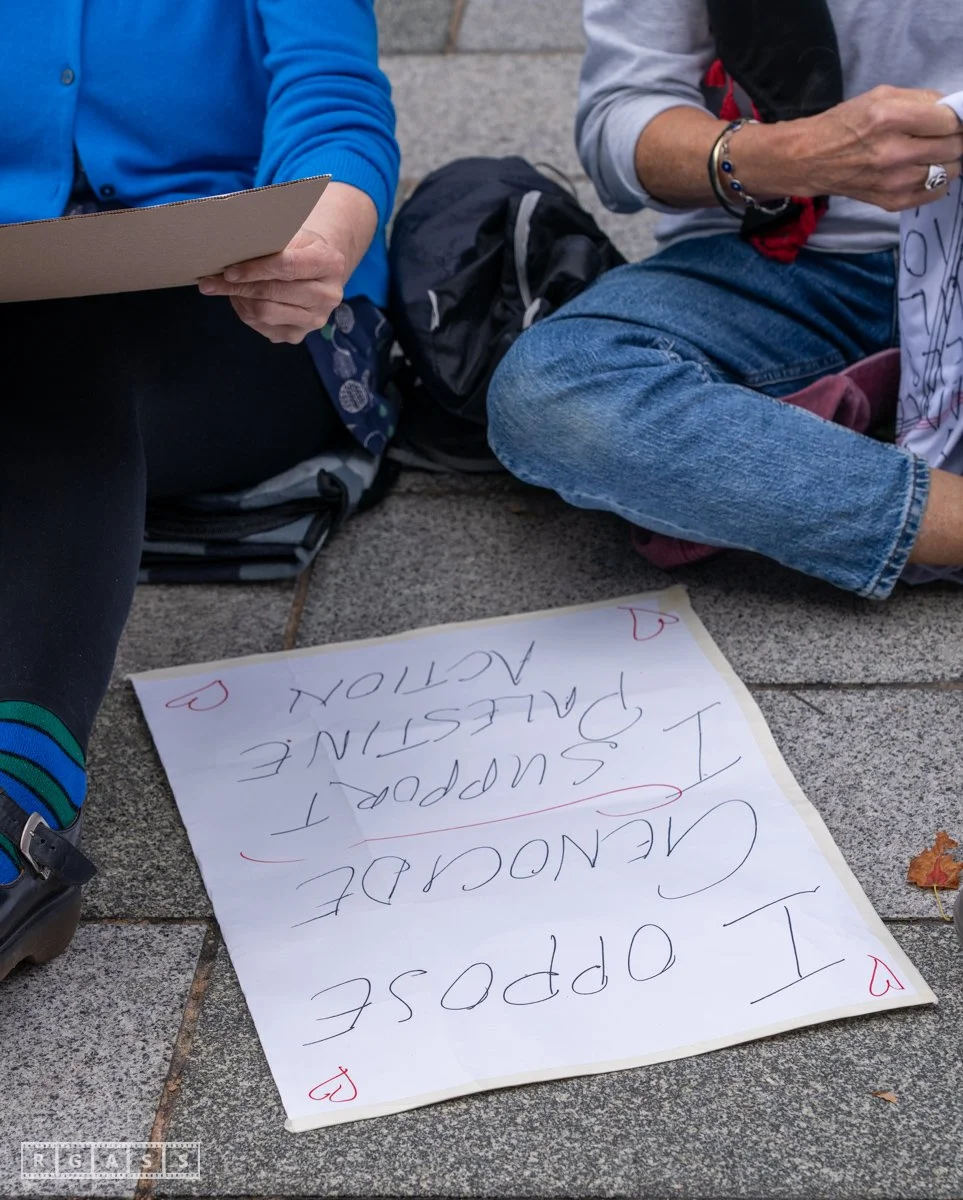 I OPPOSE
GENOCIDE
I SUPPORT
PALESTINE
ACTION
RGASS